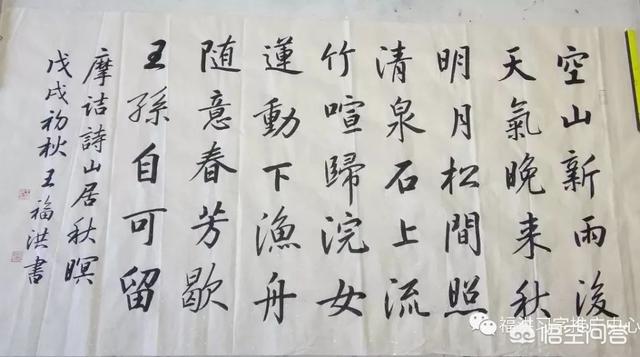 空山新雨後
天氣晚来秋
明月松間照
清泉石上流
竹喧歸浣女
蓮動下漁舟
随意春芳歇
王孫自可留
摩诘詩山居秋暝
戊戌初秋王福洪書
福洪习字推广中心
悟空问答